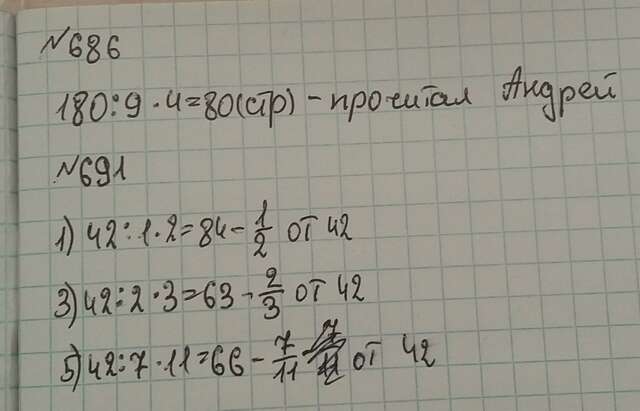 №686
180:9·4=80(стр) - прочитал Андрей
№691
1) 42:1·2=84 - 1/2 от 42
3) 42:2·3=63 - 2/3 от 42
5) 42:7·11=66 - 7/11 от 42